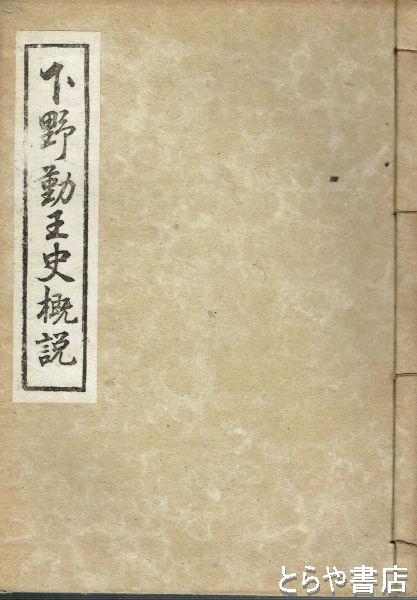 下野勤王史概説
とらや書店